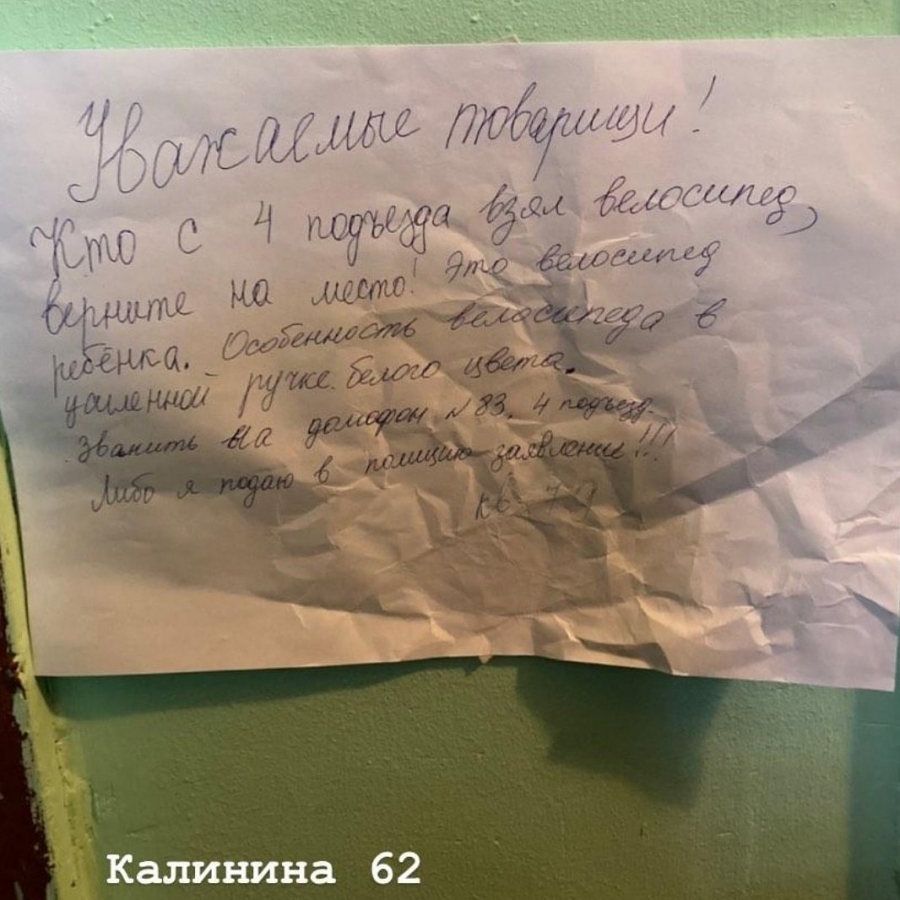 Уважаемые товарищи!
Кто с 4 подъезда взял велосипед,
верните на место! Это велосипед
ребёнка. Особенность велосипеда в
усиленной ручке белого цвета.
Званить на домофон №83, 4 подъезд.
Либо я подаю в полицию заявление!!!
кв 79
Калинина 62